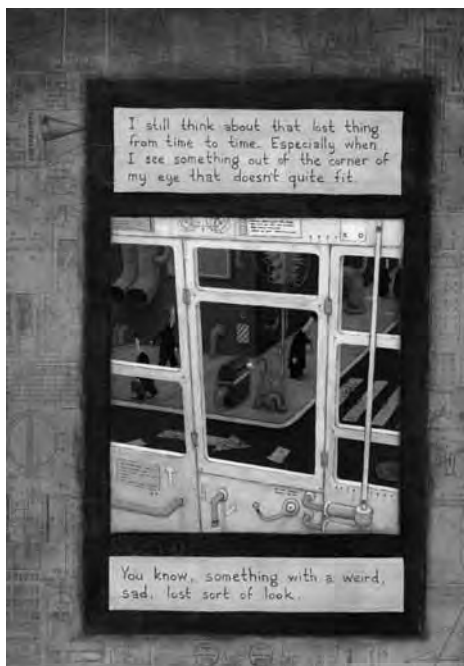 I still think about that lost thing
from time to time. Especially when
I see something out of the corner of
my eye that doesn't quite fit.
You know, something with a weird,
sad, lost sort of look.